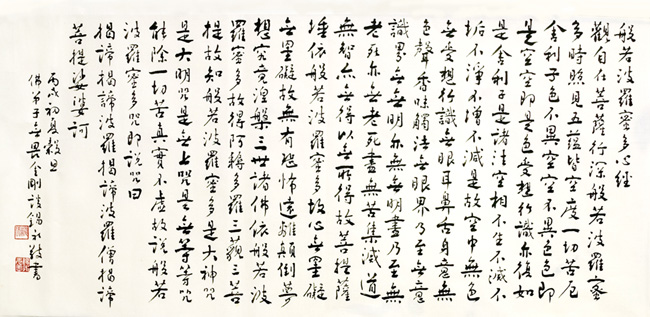 般若波羅蜜多心經
觀自在菩薩行深般若波羅蜜
多時照見五蘊皆空度一切苦厄
舍利子色不異空空不異色色即
是空空即是色受想行識亦復如
是舍利子是諸法空相不生不滅不
垢不淨不增不減是故空中無色
無受想行識無眼耳鼻舌身意無
色聲香味觸法無眼界乃至無意
識界無無明亦無無明盡乃至無
老死亦無老死盡無苦集滅道
無智亦無得以無所得故菩提薩
埵依般若波羅蜜多故心無罣礙
無罣礙故無有恐怖遠離顛倒夢
想究竟涅槃三世諸佛依般若波
羅蜜多故得阿耨多羅三藐三菩
提故知般若波羅蜜多是大神咒
是大明咒是無上咒是無等等咒
能除一切苦真實不虛故說般若
波羅蜜多咒即說咒曰
揭諦揭諦波羅揭諦波羅僧揭諦
菩提娑婆訶
丙戌初夏穀旦
佛弟子無畏金剛談錫永敬書